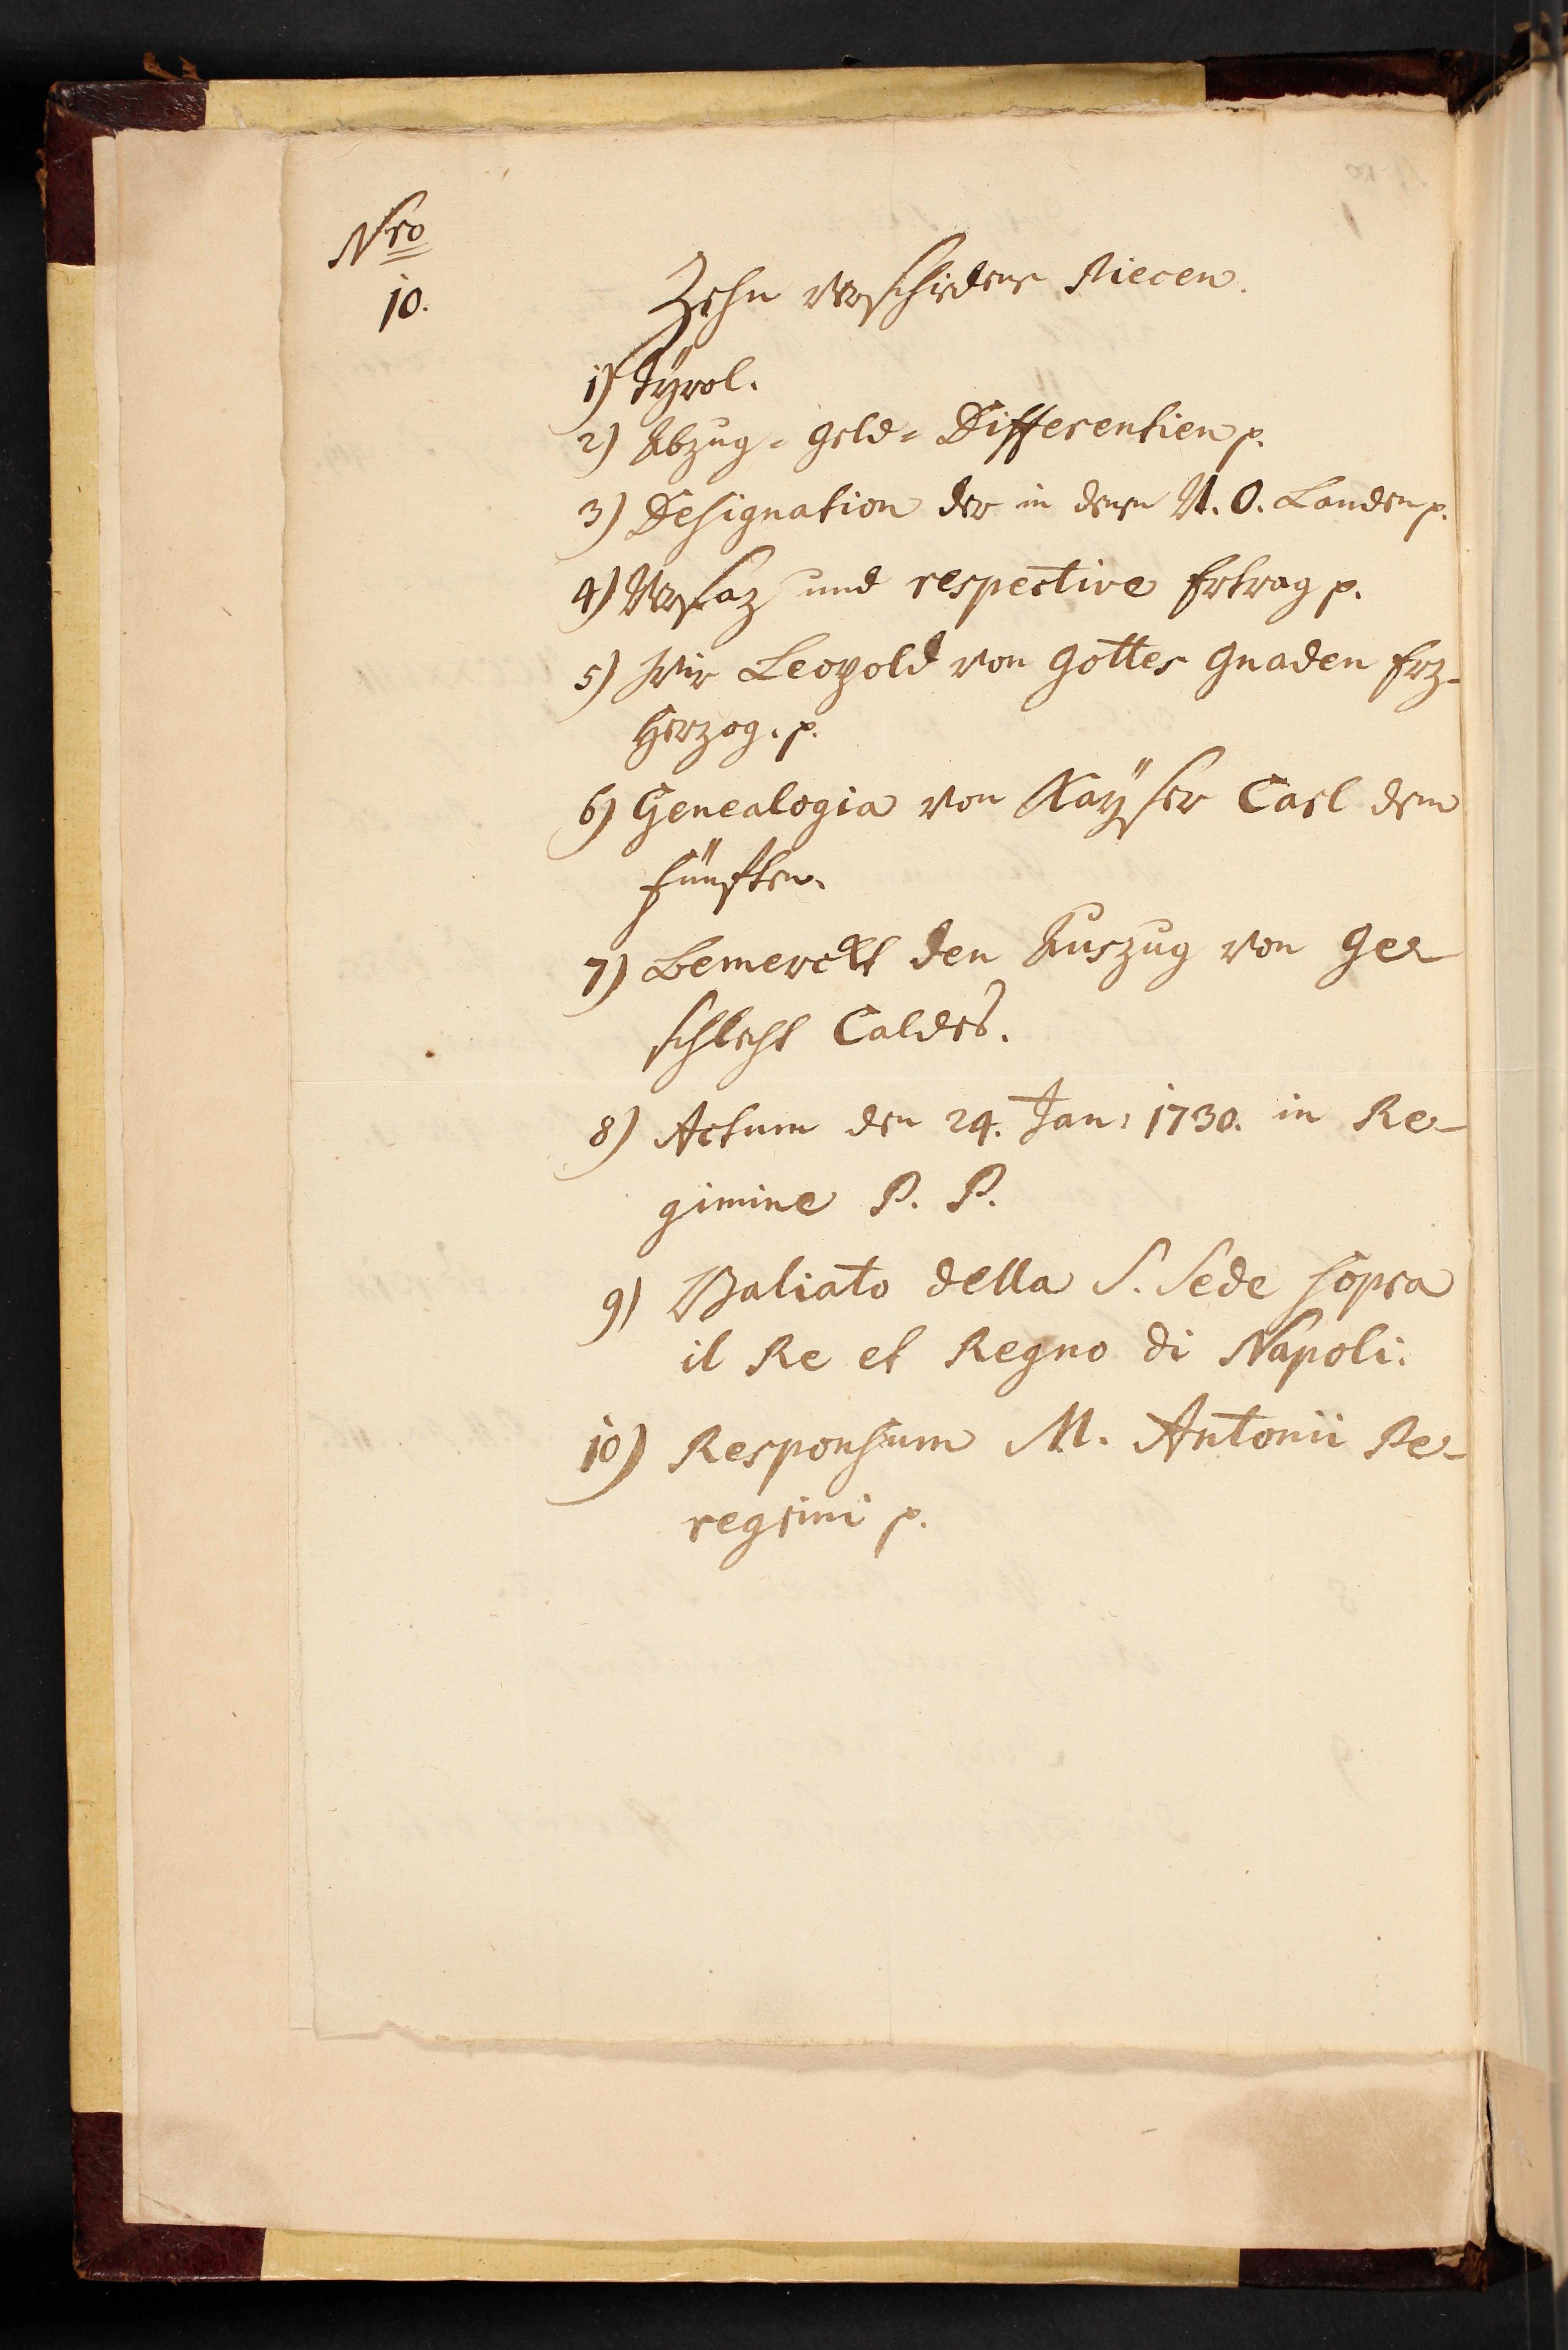 Nro
10.
Zehn verschidene Piecen.
1) Tÿrol.
2) Abzug-Geld-Differentien p.
3) Designation der in denen V. O. Landen p.
4) Versaz und respective Ertrag p.
5) Wir Leopold von Gottes Gnaden Erz-
Herzog. p.
6) Genealogia von Kaÿser Carl dem
fünften.
7) Bemerckt den Auszug von Ge-
schlecht Caldes.
8) Actum den 24. Jan: 1730. in Re-
gimine P. P.
9) Baliato della S. Sede sopra
il Re et Regno di Napoli.
10) Responsum M. Antonii Pe-
regrini p.